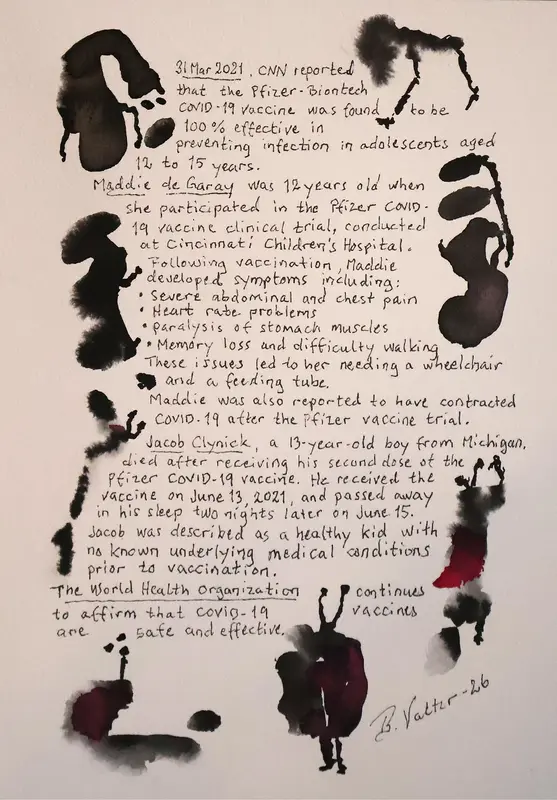 31 Mar 2021, CNN reported
that the Pfizer-Biontech
COVID-19 vaccine was found to be
100% effective in
preventing infection in adolescents aged
12 to 15 years.
Maddie de Garay was 12 years old when
she participated in the Pfizer COVID-
19 vaccine clinical trial, conducted
at Cincinnati Children's Hospital.
Following vaccination, Maddie
developed symptoms including:
• Severe abdominal and chest pain
• Heart rate problems
• paralysis of stomach muscles
• Memory loss and difficulty walking
These issues led to her needing a wheelchair
and a feeding tube.
Maddie was also reported to have contracted
COVID-19 after the Pfizer vaccine trial.
Jacob Clynick, a 13-year-old boy from Michigan,
died after receiving his second dose of the
Pfizer COVID-19 vaccine. He received the
vaccine on June 13, 2021, and passed away
in his sleep two nights later on June 15.
Jacob was described as a healthy kid with
no known underlying medical conditions
prior to vaccination.
The World Health Organization continues
to affirm that COVID-19 vaccines
are safe and effective.
B. Valter-26